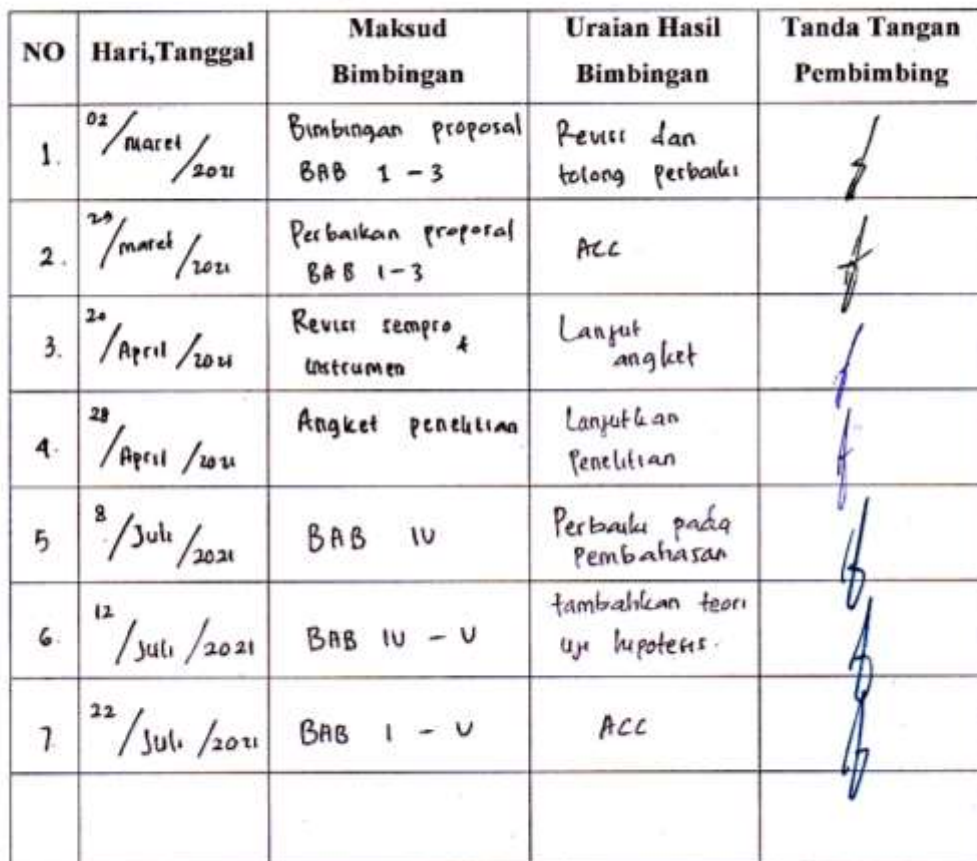 NO Hari,Tanggal Maksud Bimbingan Uraian Hasil Bimbingan Tanda Tangan Pembimbing
1. 02/maret/2021 Bimbingan proposal BAB 1 - 3 Revisi dan tolong perbaiki
2. 29/maret/2021 Perbaikan proposal BAB 1-3 ACC
3. 20/April/2021 Revisi sempro & instrumen Lanjut angket
4. 28/April/2021 Angket penelitian Lanjutkan Penelitian
5 8/Juli/2021 BAB IV Perbaiki pada Pembahasan
6. 12/Juli/2021 BAB IV - V tambahkan teori uji hipotesis.
7 22/Juli/2021 BAB I - V ACC